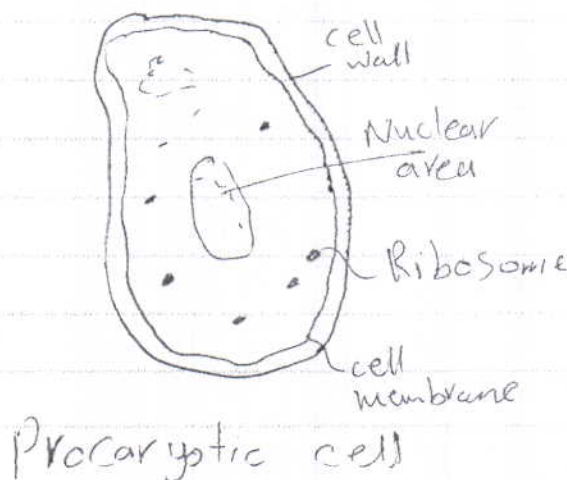 cell
wall
Nuclear
area
Ribosome
cell
membrane
Procaryotic cell